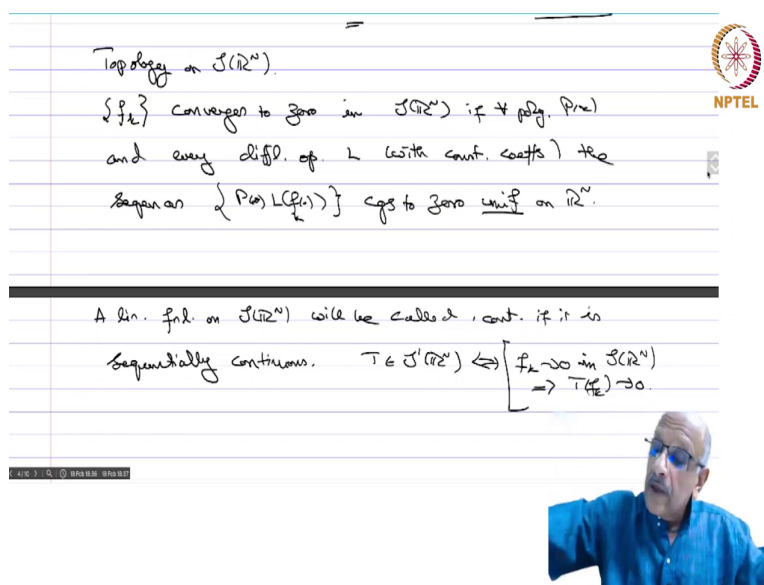 Topology on S(ℝᴺ).
{fₖ} converges to zero in S(ℝᴺ) if ∀ poly. P(x)
and every diffl. op. L (with const. coeffs) the
sequence {P(x) L(fₖ(x))} cgs to zero unif on ℝᴺ.
A lin. fnl. on S(ℝᴺ) will be called, cont. if it is
sequentially continuous. T ∈ S'(ℝᴺ) ⇔ [ fₖ → 0 in S(ℝᴺ)
⇒ T(fₖ) → 0.
NPTEL
4/10 18 Feb 18:36 18 Feb 18:37